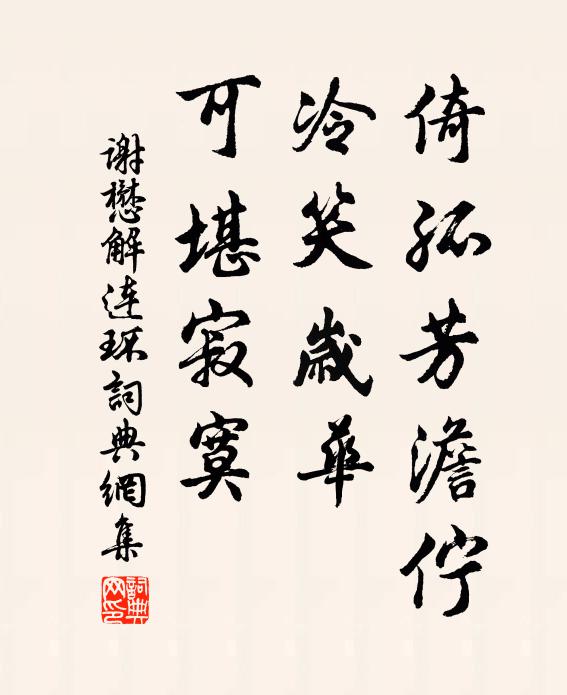 倚孤芳澹伫
冷笑歲華
可堪寂寞
谢懋解连环詞典網集
詞典网印